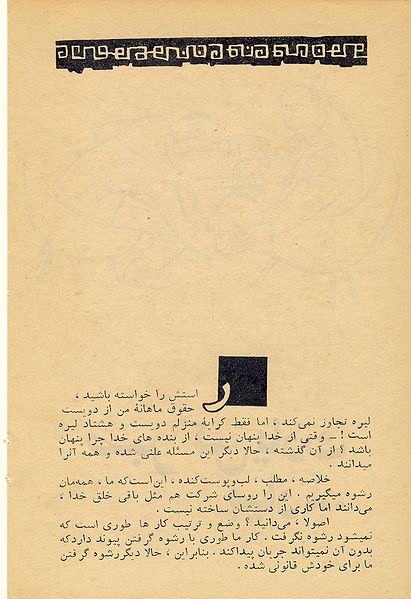 ر
استش را خواسته باشید ،
حقوق ماهانهٔ من از دویست
لیره تجاوز نمی‌کند ، اما فقط کرایهٔ منزلم دویست و هشتاد لیره
است ! ــ وقتی از خدا پنهان نیست ، از بنده های خدا چرا پنهان
باشد ؟ از آن گذشته ، حالا دیگر این مسئله علنی شده و همه آنرا
میدانند .
خلاصه ، مطلب ، لب‌وپوست‌کنده ، این‌است‌که ما ، همه‌مان
رشوه میگیریم . این را روسای شرکت هم مثل باقی خلق خدا ،
می‌دانند اما کاری از دستشان ساخته نیست .
اصولا ، می‌دانید ؟ وضع و ترتیب کار ها طوری است که
نمیشود رشوه نگرفت . کار ما طوری با رشوه گرفتن پیوند داردکه
بدون آن نمیتواند جریان پیداکند . بنابراین ، حالا دیگررشوه گرفتن
ما برای خودش قانونی شده .